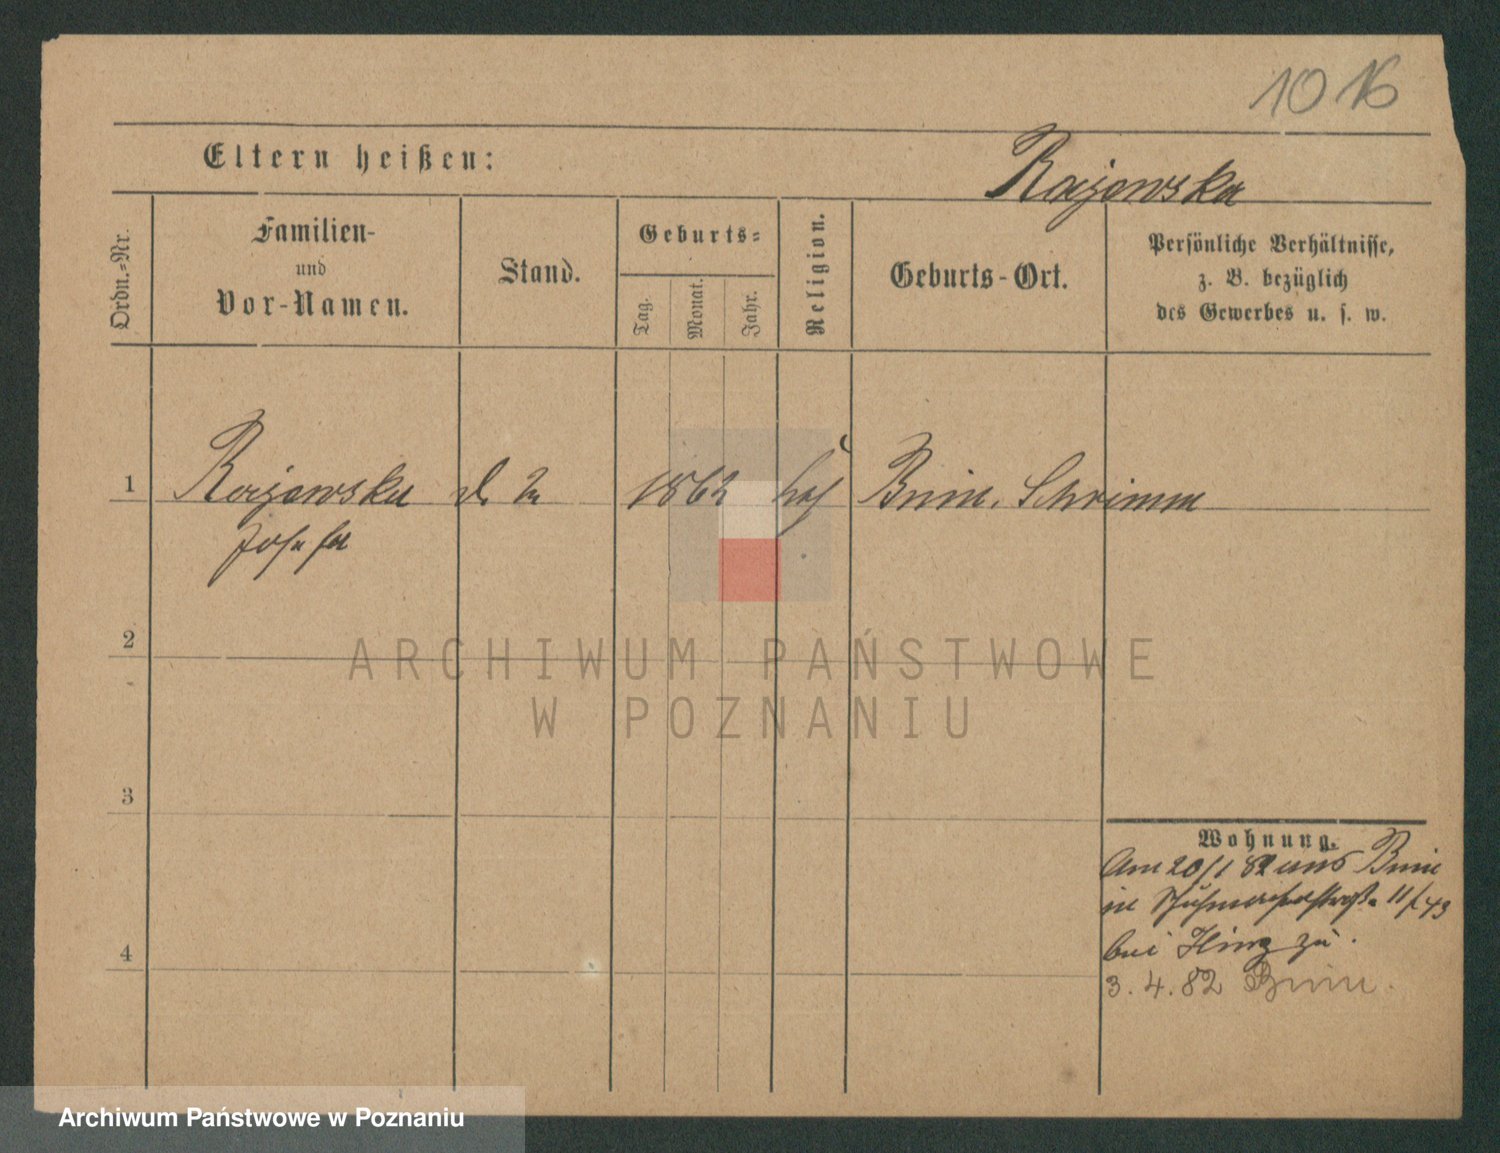 1016
Eltern heißen:
Rajewska
Ordn.-Nr.
Familien-
und
Vor-Namen.
Stand.
Geburts-
Tag.
Monat.
Jahr.
Religion.
Geburts-Ort.
Persönliche Verhältnisse,
z. B. bezüglich
des Gewerbes u. s. w.
1 Rajewska 1862 Bnin, Schrimm
Josefa
2
ARCHIWUM PAŃSTWOWE
W POZNANIU
3
4
Wohnung.
Am 20/1 82 aus Bnin
in 11/43
bei Hinz zu.
3.4.82 Bnin.
Archiwum Państwowe w Poznaniu